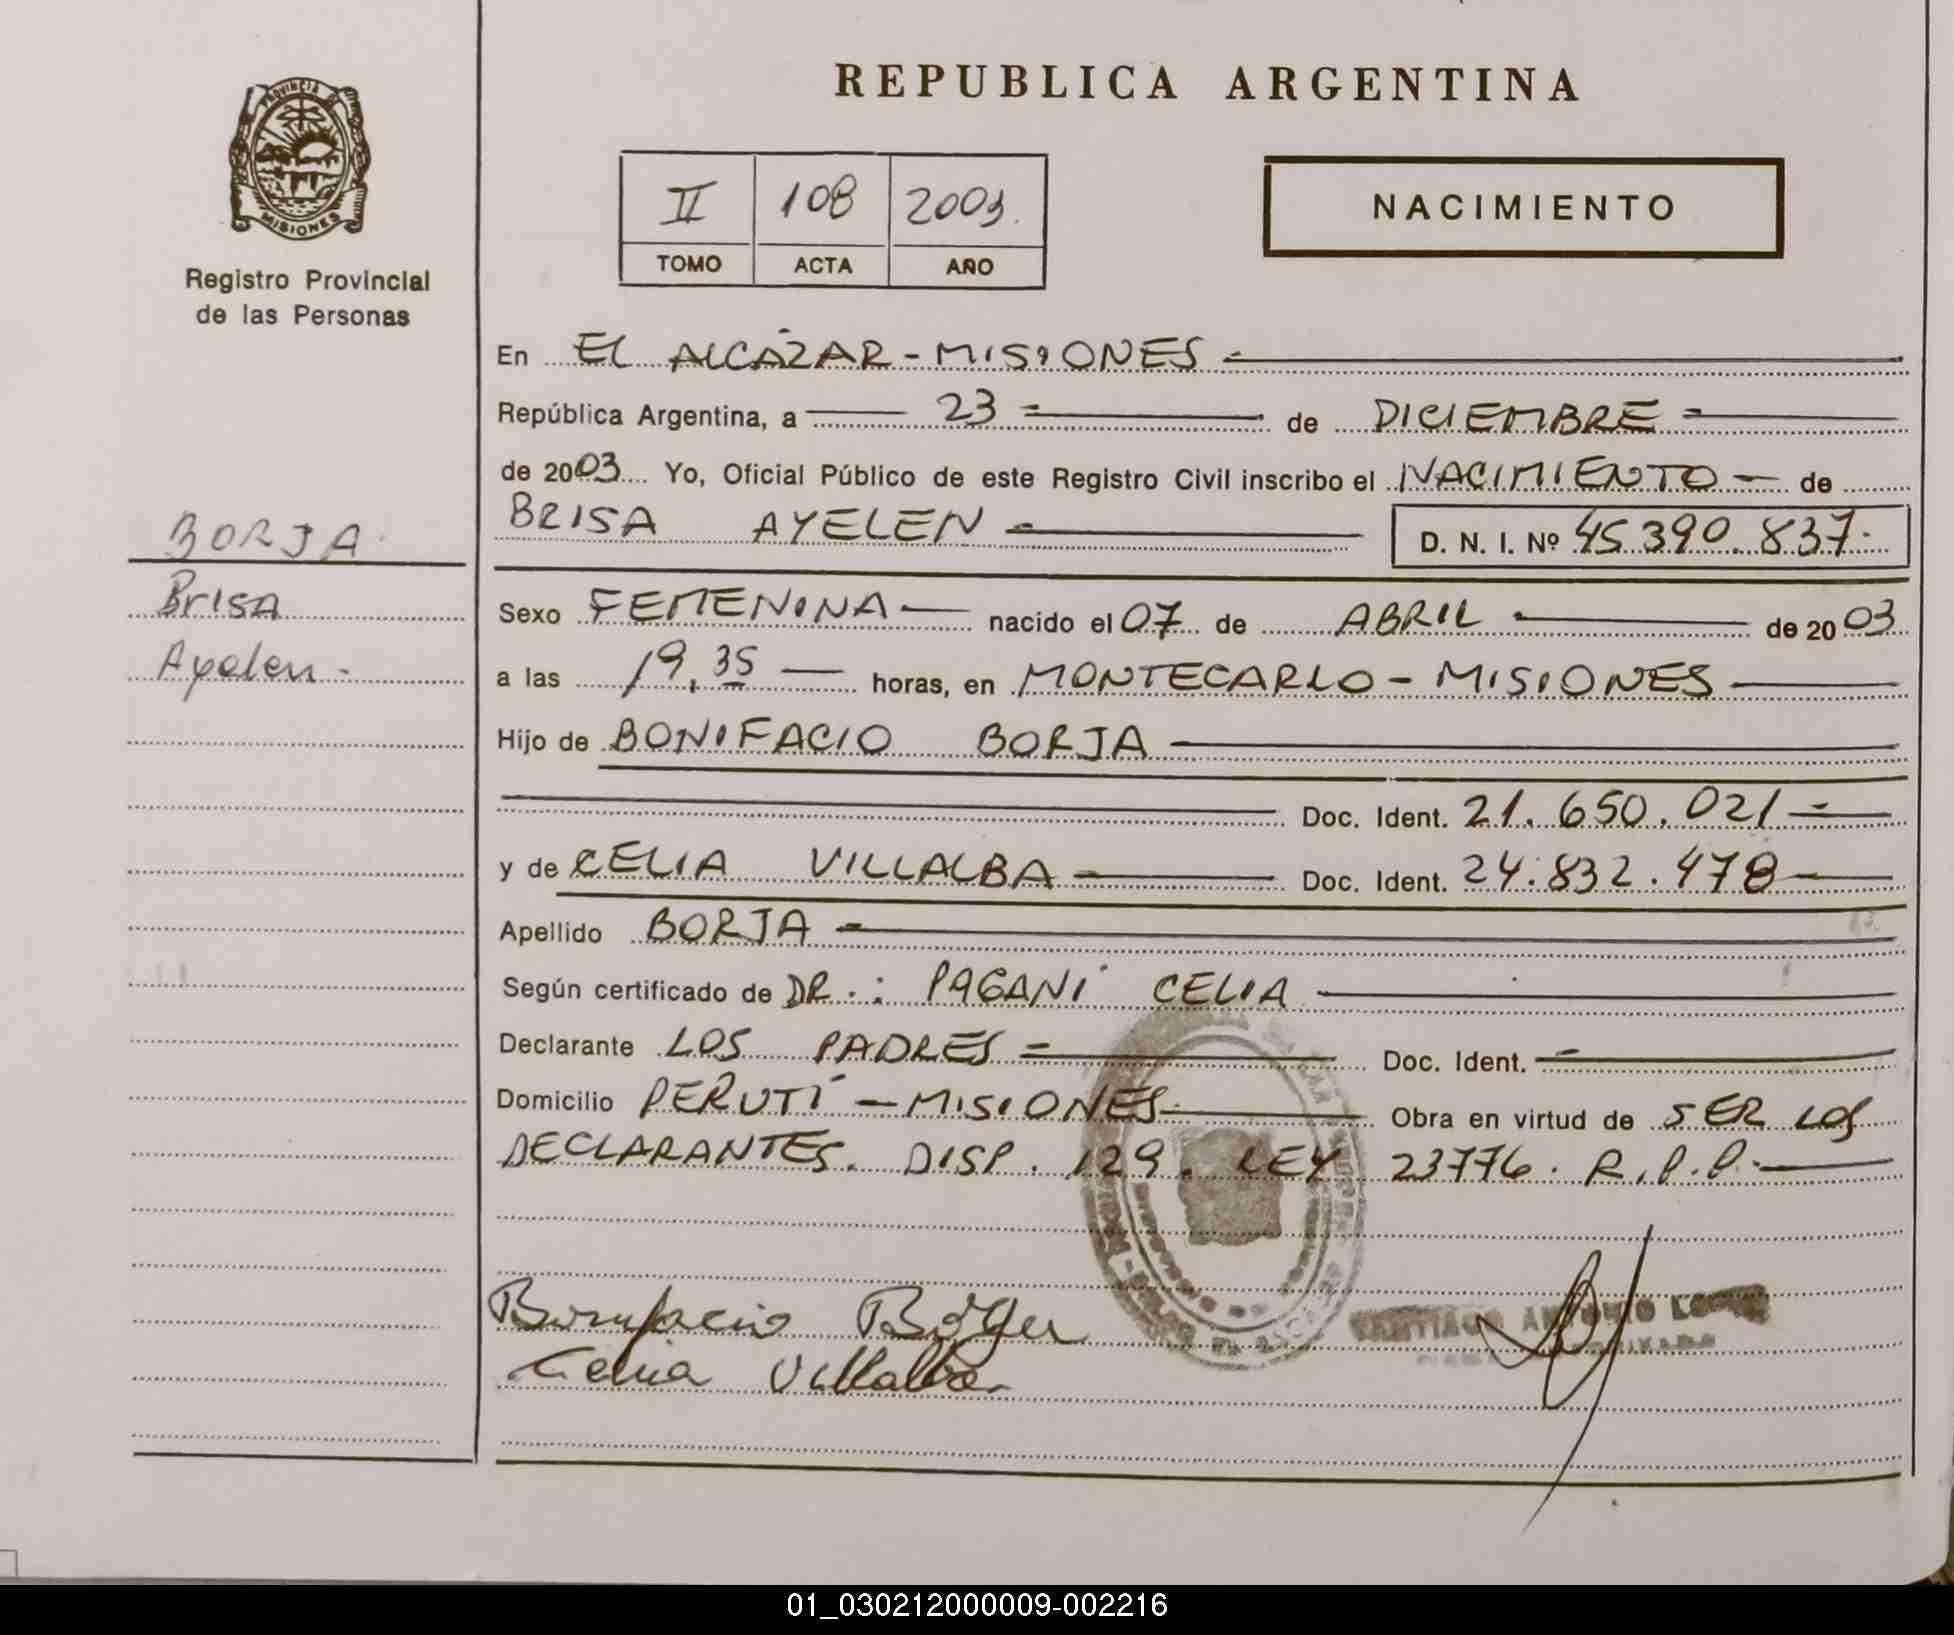 REPUBLICA ARGENTINA
PROVINCIA DE
MISIONES
Registro Provincial
de las Personas
II 108 2003.
TOMO ACTA AÑO
NACIMIENTO
En EL ALCÁZAR - MISIONES
República Argentina, a 23 de DICIEMBRE
de 2003 Yo, Oficial Público de este Registro Civil inscribo el NACIMIENTO de
BRISA AYELEN D. N. I. Nº 45.390.837.
BORJA
Brisa
Ayelen.
Sexo FEMENINA nacido el 07 de ABRIL de 2003
a las 19,35 horas, en MONTECARLO - MISIONES
Hijo de BONIFACIO BORJA
Doc. Ident. 21.650.021
y de CELIA VILLALBA Doc. Ident. 24.832.478
Apellido BORJA
Según certificado de DR.: PAGANI CELIA
Declarante LOS PADRES Doc. Ident.
Domicilio PERUTÍ - MISIONES Obra en virtud de SER LOS
DECLARANTES. DISP. 129. LEY 23776. R.P.P.
Bonifacio Borja
SANTIAGO ANTONIO
Celia Villalba
01_030212000009-002216